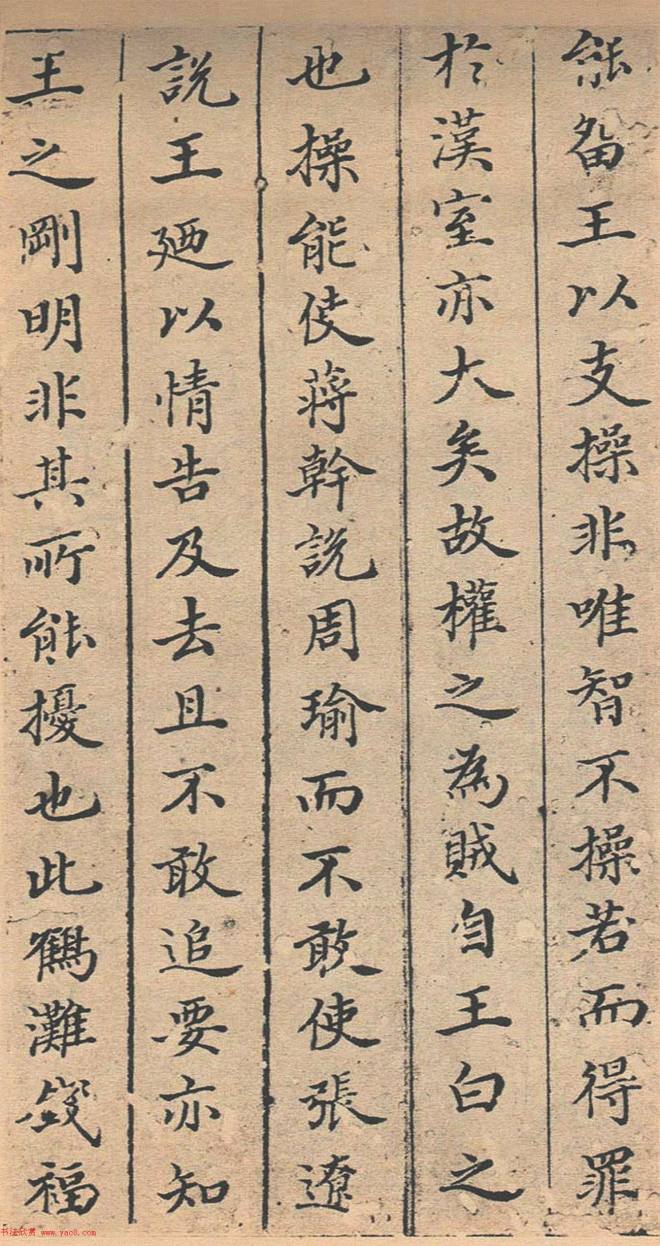 能留王以支操非唯智不操若而得罪
於漢室亦大矣故權之為賊自王白之
也操能使蔣幹說周瑜而不敢使張遼
說王廼以情告及去且不敢追要亦知
王之剛明非其所能擾也此鶴灘錢福
书法欣赏 www.yac8.com